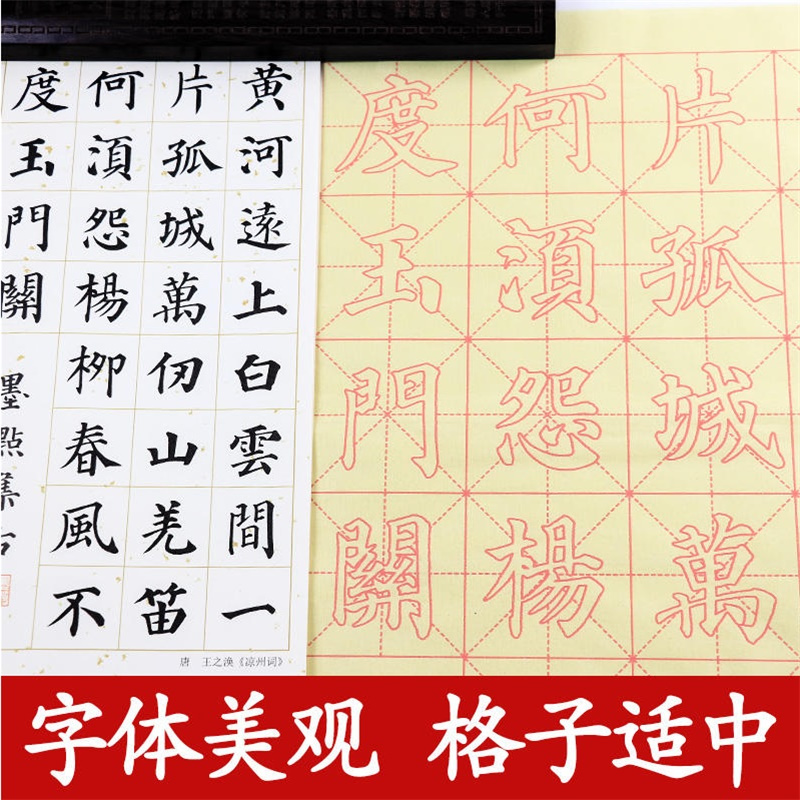 黄河遠上白雲間一
片孤城萬仞山羌笛
何湏怨楊柳春風不
度玉門關
墨點集古
唐 王之涣《凉州词》
片孤城萬
何湏怨楊
度玉門關
字体美观 格子适中